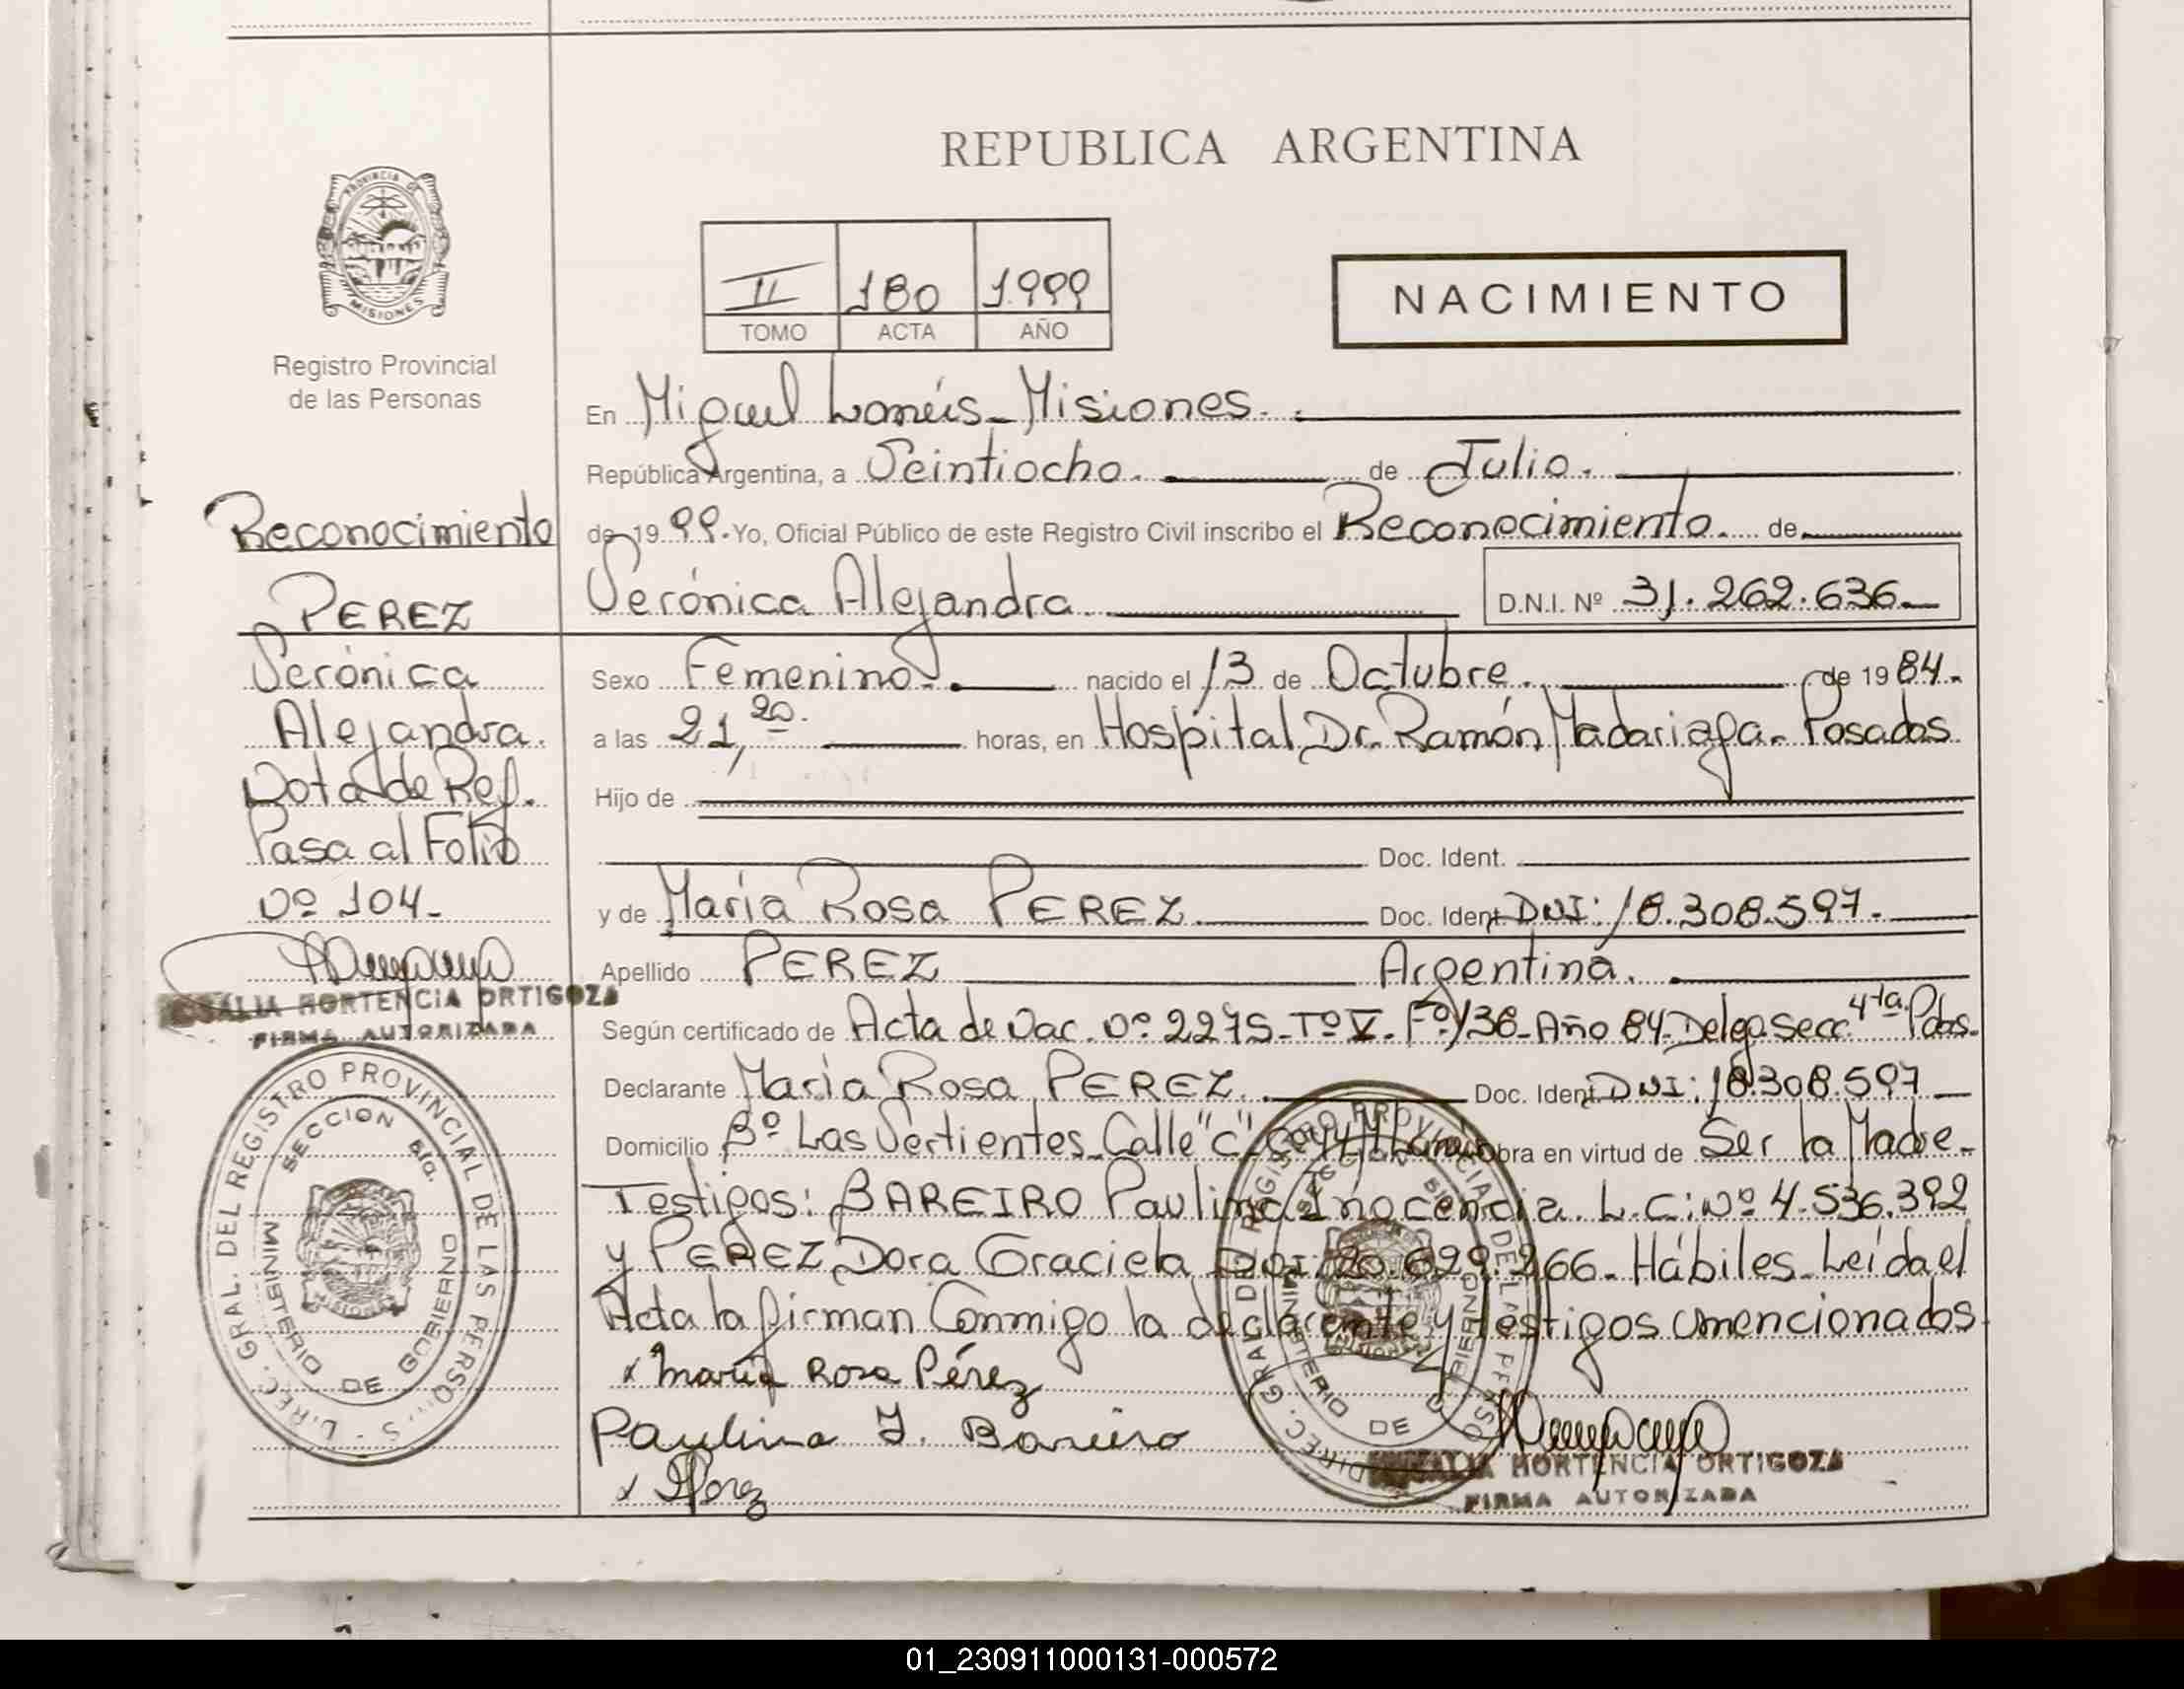 REPUBLICA ARGENTINA
PROVINCIA DE
MISIONES
Registro Provincial
de las Personas
II 180 1999
TOMO ACTA AÑO
NACIMIENTO
En Miguel Lanús - Misiones.
República Argentina, a Veintiocho. de Julio.
de 1999. Yo, Oficial Público de este Registro Civil inscribo el Reconocimiento. de
Verónica Alejandra D.N.I. Nº 31.262.636
Sexo Femenino. nacido el 13 de Octubre. de 1984.
a las 21,20. horas, en Hospital Dr. Ramón Madariaga. Posadas
Hijo de
Doc. Ident.
y de María Rosa PEREZ Doc. Ident. DNI: 18.308.597.
Apellido PEREZ Argentina.
Según certificado de Acta de Nac. Nº 2275 - Tº V. Fº 136 - Año 84 - Deleg. Secc. 4ta. Pdas.
Declarante María Rosa PEREZ. Doc. Ident. DNI: 18.308.597
Domicilio Bº Las Vertientes - Calle "C" Obra en virtud de Ser la Madre.
Testigos: BAREIRO Paulina Inocencia. L.C: Nº 4.536.392
y PEREZ Dora Graciela DNI: 20.629.266 - Hábiles - Leída el
Acta la firman Conmigo la declarante y testigos mencionados
x María Rosa Pérez
Paulina I. Bareiro
x Perez
HORTENCIA ORTIGOZA
FIRMA AUTORIZADA
Reconocimiento
PEREZ
Verónica
Alejandra.
Nota de Ref.
Pasa al Folio
Nº 104.
ROSALIA HORTENCIA ORTIGOZA
FIRMA AUTORIZADA
DIREC. GRAL. DEL REGISTRO PROVINCIAL DE LAS PERSONAS
SECCION 5ta.
MINISTERIO DE GOBIERNO
DIREC. GRAL. DEL REGISTRO PROVINCIAL DE LAS PERSONAS
SECCION 5ta.
MINISTERIO DE GOBIERNO
01_230911000131-000572